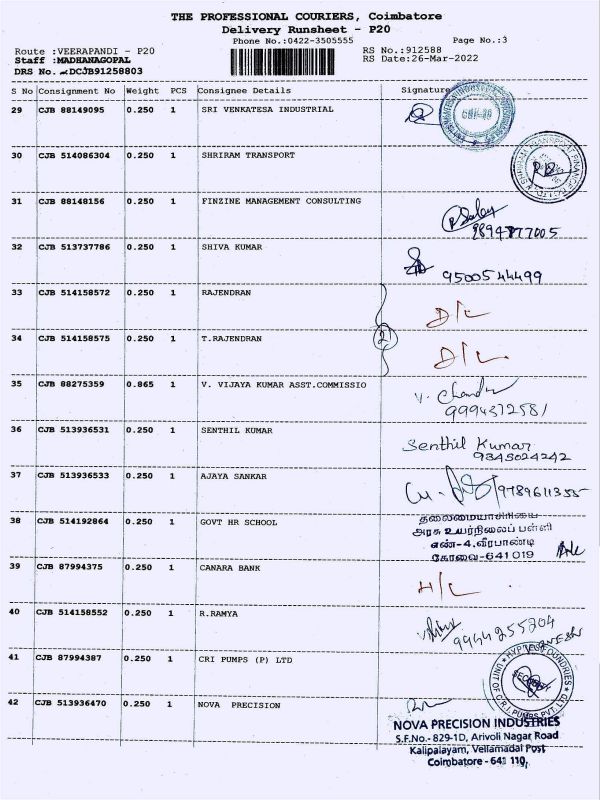 THE PROFESSIONAL COURIERS, Coimbatore
Delivery Runsheet - P20
Phone No.:0422-3505555 Page No.:3
Route :VEERAPANDI - P20 RS No.:912588
Staff :MADHANAGOPAL RS Date:26-Mar-2022
DRS No. DCJB91258803
S No Consignment No Weight PCS Consignee Details Signature
29 CJB 88149095 0.250 1 SRI VENKATESA INDUSTRIAL
30 CJB 514086304 0.250 1 SHRIRAM TRANSPORT
31 CJB 88148156 0.250 1 FINZINE MANAGEMENT CONSULTING
32 CJB 513737786 0.250 1 SHIVA KUMAR
9500544499
33 CJB 514158572 0.250 1 RAJENDRAN
D/L
2
34 CJB 514158575 0.250 1 T.RAJENDRAN
D/L
35 CJB 88275359 0.865 1 V. VIJAYA KUMAR ASST.COMMISSIO
9994372581
36 CJB 513936531 0.250 1 SENTHIL KUMAR
Senthil Kumar
9345024242
37 CJB 513936533 0.250 1 AJAYA SANKAR
9789611355
38 CJB 514192864 0.250 1 GOVT HR SCHOOL
தலைமையாசிரியை
அரசு உயர்நிலைப் பள்ளி
எண்-4.வீரபாண்டி
கோவை-641 019
39 CJB 87994375 0.250 1 CANARA BANK
40 CJB 514158552 0.250 1 R.RAMYA
9944255204
41 CJB 87994387 0.250 1 CRI PUMPS (P) LTD
42 CJB 513936470 0.250 1 NOVA PRECISION
NOVA PRECISION INDUSTRIES
S.F.No.- 829-1D, Arivoli Nagar Road
Kalipalayam, Vellamadai Post
Coimbatore - 641 110,